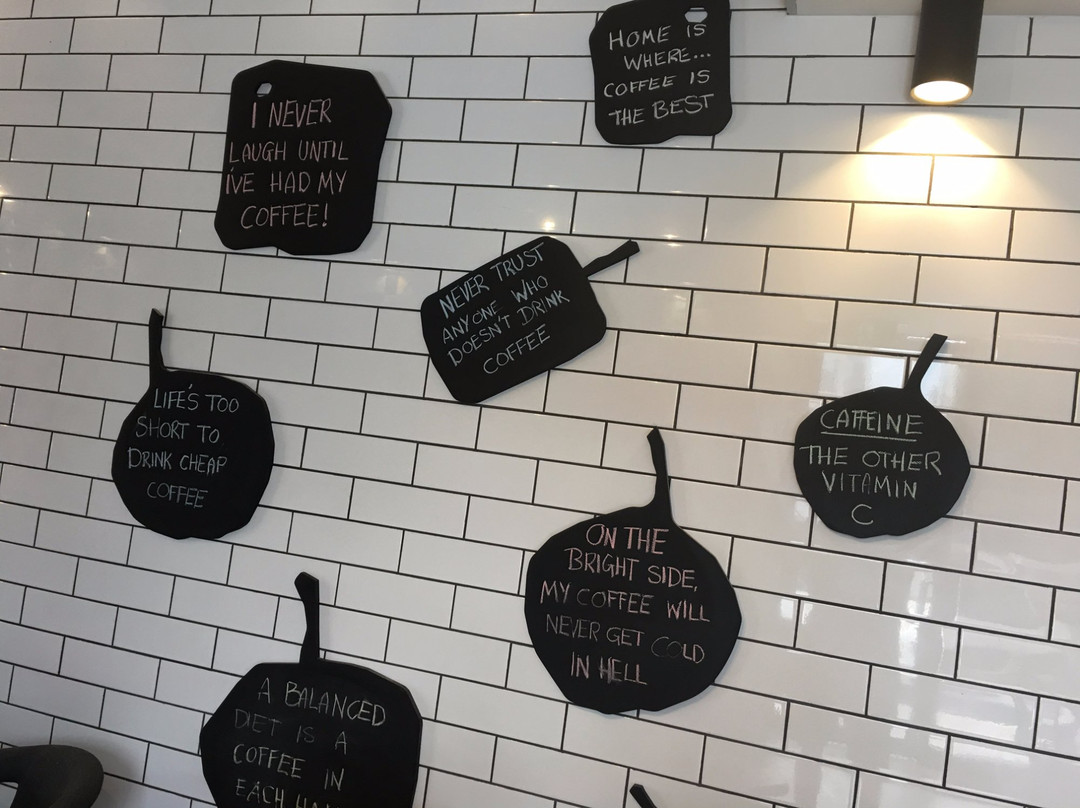 HOME IS
WHERE...
COFFEE IS
THE BEST
I NEVER
LAUGH UNTIL
I'VE HAD MY
COFFEE!
NEVER TRUST
ANYONE WHO
DOESN'T DRINK
COFFEE
LIFE'S TOO
SHORT TO
DRINK CHEAP
COFFEE
CAFFEINE
THE OTHER
VITAMIN
C
ON THE
BRIGHT SIDE,
MY COFFEE WILL
NEVER GET COLD
IN HELL
A BALANCED
DIET IS A
COFFEE IN
EACH